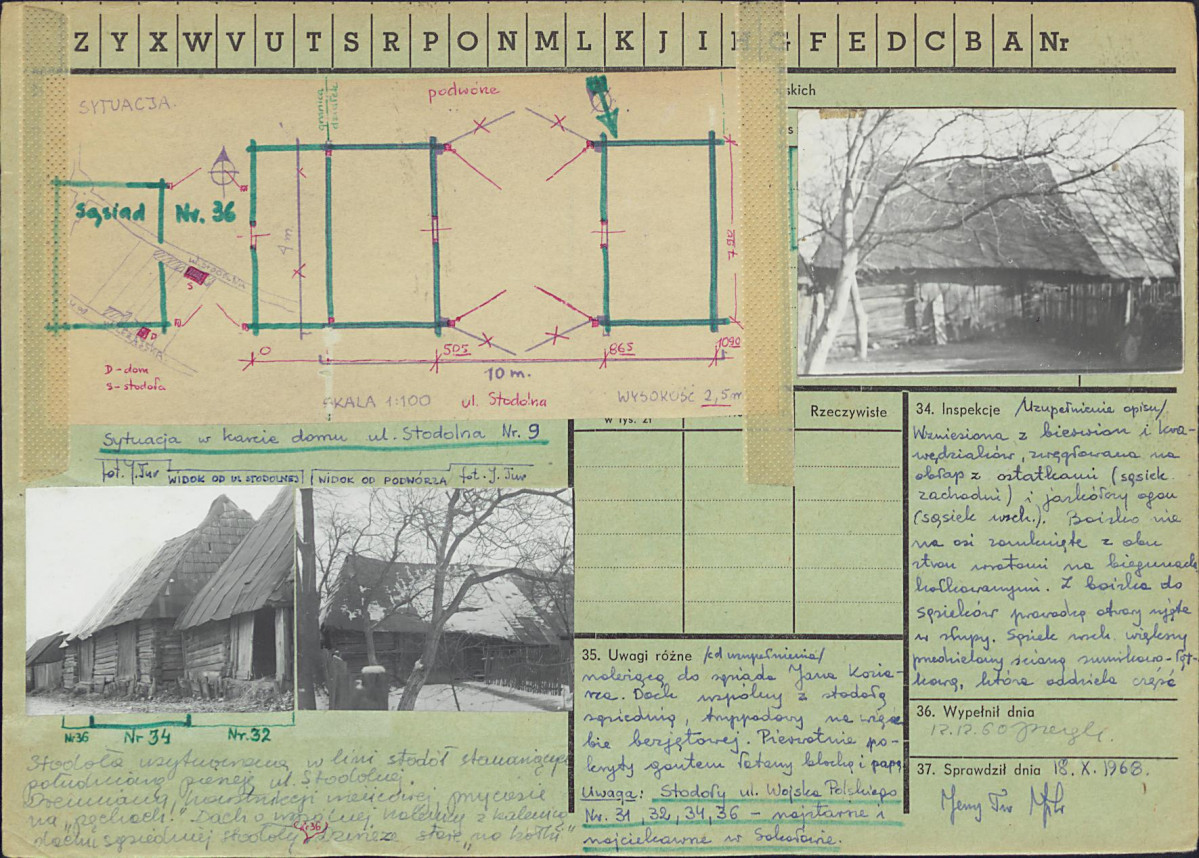 Z Y X W V U T S R P O N M L K J I H G F E D C B A Nr
skich
SYTUACJA.
granica działek
podwórze
sąsiad
Nr. 36
4 m
790
S
D
D - dom
S - stodoła
0
505
865
1090
10 m.
SKALA 1:100
ul. Stodolna
WYSOKOŚĆ 2,5 m
Sytuacja w karcie domu ul. Stodolna Nr. 9
fot. J. Tur
WIDOK OD UL STODOLNEJ
WIDOK OD PODWÓRZA
fot. J. Tur
Nr 36
Nr 34
Nr. 32
Stodoła usytuowana w linii stodół stanowiącej
południową pierzeję ul. Stodolnej.
Drewniana, konstrukcji węgłowej, przyciesie
na „pecach". Dach o wspólnej kalenicy z kalenicą
dachu sąsiedniej stodoły (Nr 36)
w tys. zł
Rzeczywiste
34. Inspekcje /Uzupełnienie opisu/
Wzniesiona z bierwion i kra-
wędziaków, zwęgłowana na
obłap z ostatkami (sąsiek
zachodni) i jaskółczy ogon
(sąsiek wsch.). Boisko nie
na osi zamknięte z obu
stron wrotami na biegunach
kołkowanymi. Z boiska do
sąsieków prowadzą otwory ujęte
w słupy. Sąsiek wsch. większy
przedzielony ścianą sumikowo-łąt-
kową, która oddziela część
35. Uwagi różne /cd uzupełnienia/
należącą do sąsiada Jana Kozia-
rza. Dach wspólny z stodołą
sąsiednią, trzypadowy na więź-
bie bezjętowej. Pierwotnie po-
kryty gontem łatany blachą i papą
Uwaga: Stodoły ul. Wojska Polskiego
Nr. 31, 32, 34, 36 – najstarsze i
najciekawsze w Sokołowie.
36. Wypełnił dnia
12.12.60
37. Sprawdził dnia 18. X. 1968.
Jerzy Tur